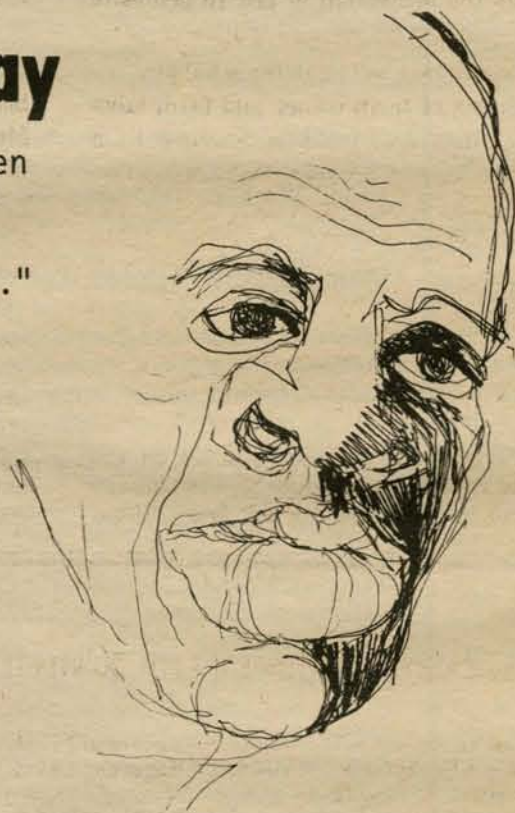 ay
en
."